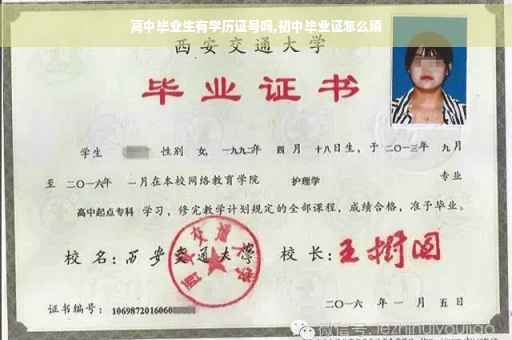 高中毕业生有学历证号吗,初中毕业证怎么填
西安交通大学
毕业证书
学生 性别 女, 一九九二年 四月 十八日生, 于二〇一三年 九月
至 二〇一六年 一月在本校网络教育学院 护理学 专业
高中起点专科 学习, 修完教学计划规定的全部课程, 成绩合格, 准予毕业。
校名: 西安交通大学 校长: 王树国
西安交通大学
证书编号: 1069872016060
二〇一六年 一月 五日
微信号: jezhinuiyoujiao